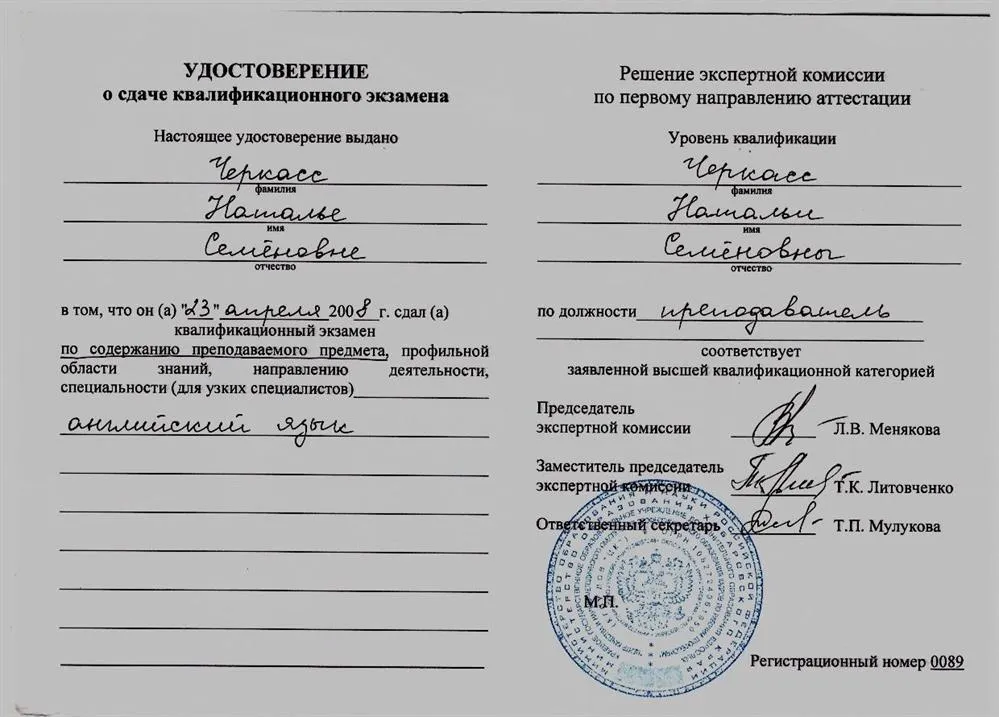 УДОСТОВЕРЕНИЕ
о сдаче квалификационного экзамена
Настоящее удостоверение выдано
Черкасс
фамилия
Наталье
имя
Семёновне
отчество
в том, что он (а) "23" апреля 2008 г. сдал (а)
квалификационный экзамен
по содержанию преподаваемого предмета, профильной
области знаний, направлению деятельности,
специальности (для узких специалистов)
английский язык
Решение экспертной комиссии
по первому направлению аттестации
Уровень квалификации
Черкасс
фамилия
Натальи
имя
Семёновны
отчество
по должности преподаватель
соответствует
заявленной высшей квалификационной категорией
Председатель
экспертной комиссии Л.В. Менякова
Заместитель председатель
экспертной комиссии Т.К. Литовченко
Ответственный секретарь Т.П. Мулукова
МИНИСТЕРСТВО ОБРАЗОВАНИЯ И НАУКИ РОССИЙСКОЙ ФЕДЕРАЦИИ
М.П.
Регистрационный номер 0089